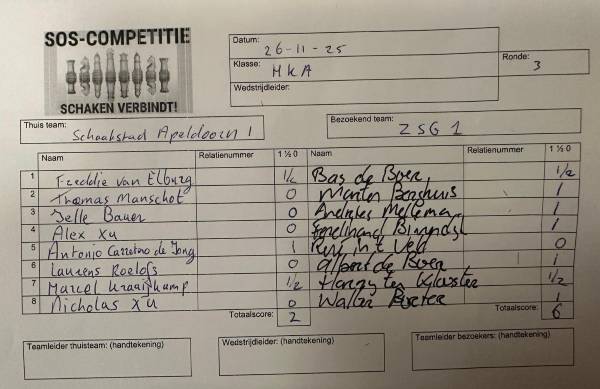 SOS-COMPETITIE
SCHAKEN VERBINDT!
Datum: 26-11-25
Klasse: HKA
Ronde: 3
Wedstrijdleider:
Thuis team: Schaakstad Apeldoorn 1
Bezoekend team: ZSG 1
Naam Relatienummer 1 ½ 0 Naam Relatienummer 1 ½ 0
1 Freddie van Elburg 1/2 Bas de Boer 1/2
2 Thomas Manschot 0 1
3 Jelle Bauer 0 1
4 Alex Xu 0 1
5 Antonio Carretero de Jong 1 in 't Veld 0
6 Laurens Roelofs 0 Albert de Boer 1
7 Marcel Kraaijkamp 1/2 Harry ten Klooster 1/2
8 Nicholas Xu 0 1
Totaalscore: 2 Totaalscore: 6
Teamleider thuisteam: (handtekening) Wedstrijdleider: (handtekening) Teamleider bezoekers: (handtekening)